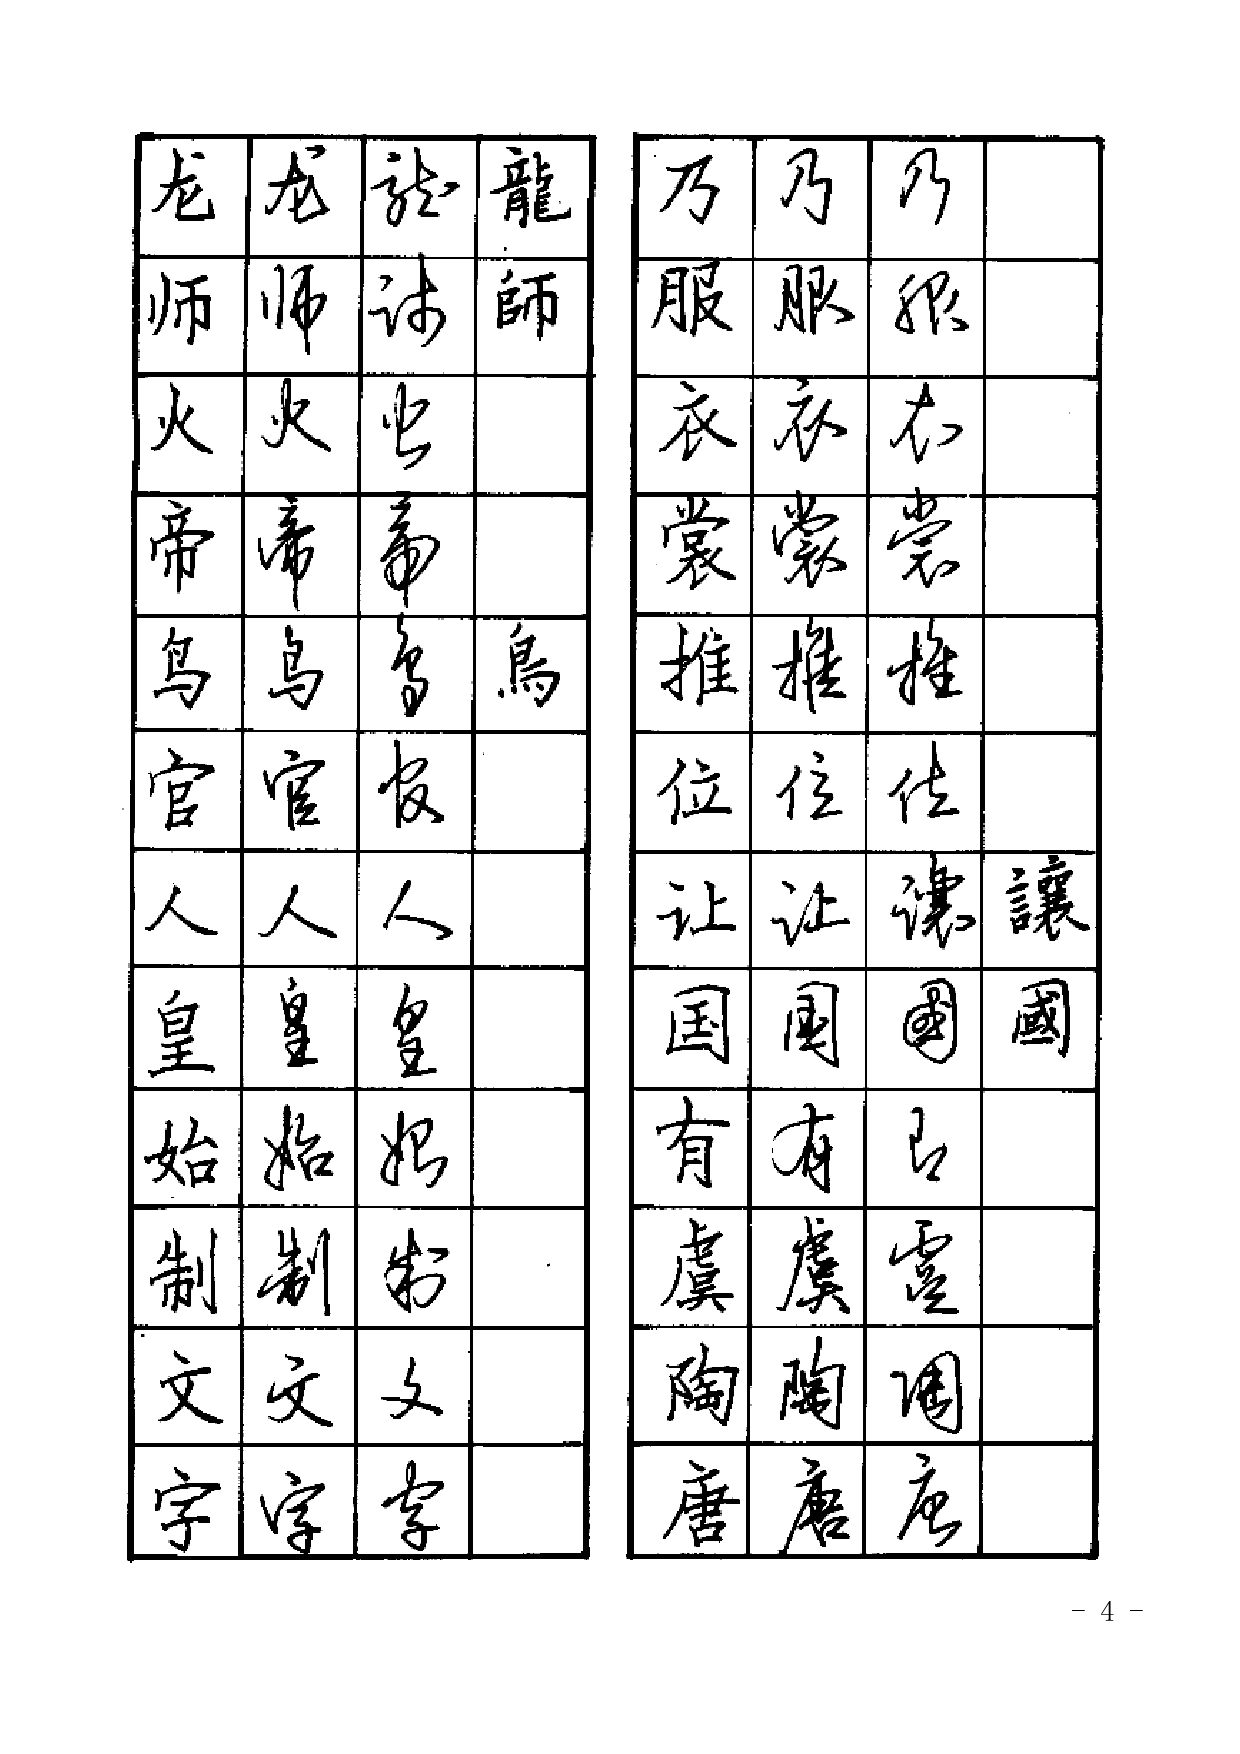 龙 龙 龙 龍
师 师 师 師
火 火 火
帝 帝 帝
鸟 鸟 鸟 鳥
官 官 官
人 人 人
皇 皇 皇
始 始 始
制 制 制
文 文 文
字 字 字
乃 乃 乃
服 服 服
衣 衣 衣
裳 裳 裳
推 推 推
位 位 位
让 让 讓 讓
国 国 國 國
有 有 有
虞 虞 虞
陶 陶 陶
唐 唐 唐
- 4 -